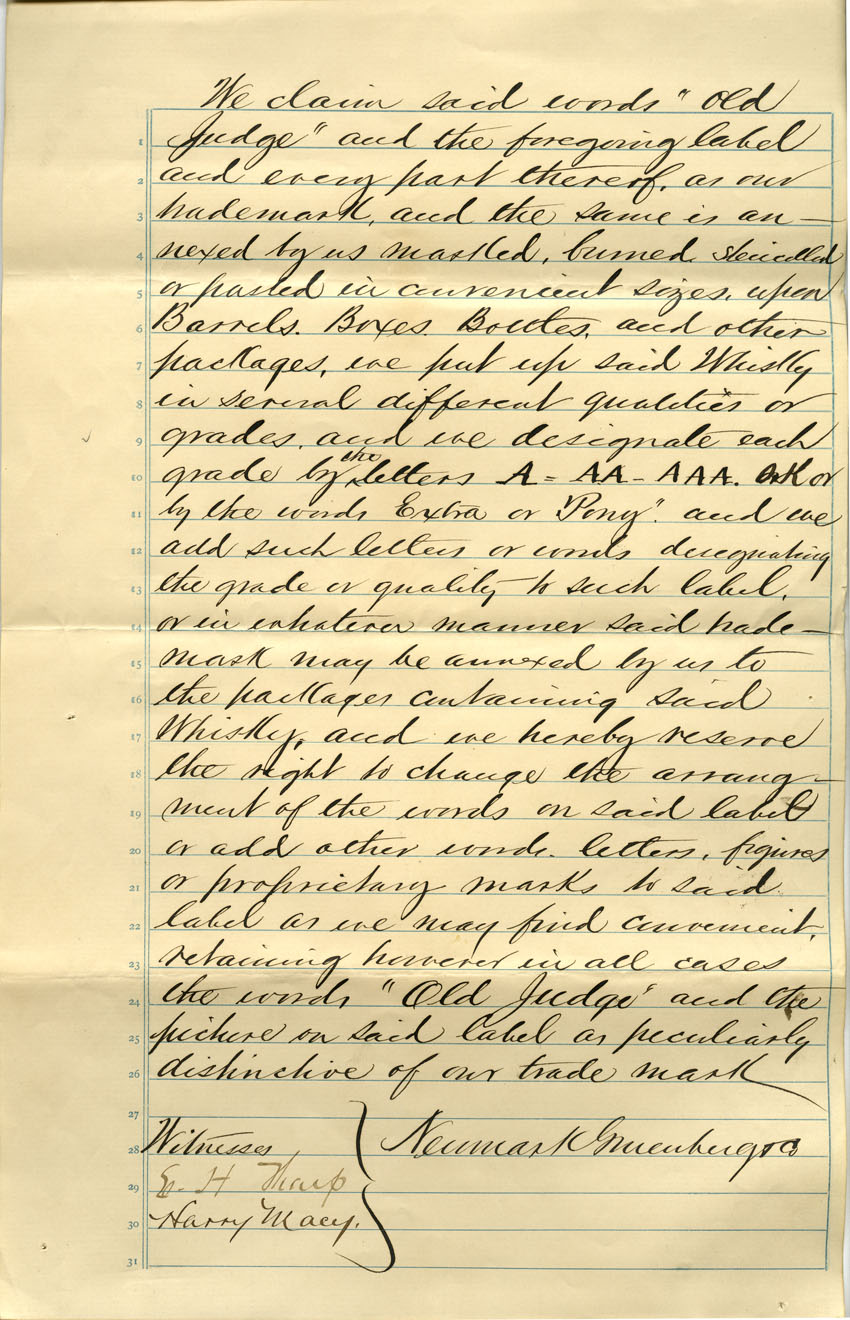 We claim said words "Old
1 Judge" and the foregoing label
2 and every part thereof, as our
3 trademark, and the same is an-
4 nexed by us marked, burned, stencilled
5 or pasted in convenient sizes, upon
6 Barrels. Boxes. Bottles, and other
7 packages, we put up said Whisky
8 in several different qualities or
9 grades, and we designate each
10 grade by the letters A - AA - AAA. or
11 by the words Extra or "Pony". and we
12 add such letters or words designating
13 the grade or quality to such label,
14 or in whatever manner said trade-
15 mark may be annexed by us to
16 the packages containing said
17 Whisky, and we hereby reserve
18 the right to change the arrang-
19 ment of the words on said label
20 or add other words. letters, figures
21 or proprietary marks to said
22 label as we may find convenient,
23 retaining however in all cases
24 the words "Old Judge" and the
25 picture on said label as peculiarly
26 distinctive of our trade mark
27
28 Witnesses Newmark Gruenberg & Co
29 E. H. Tharp
30 Harry Macy.
31